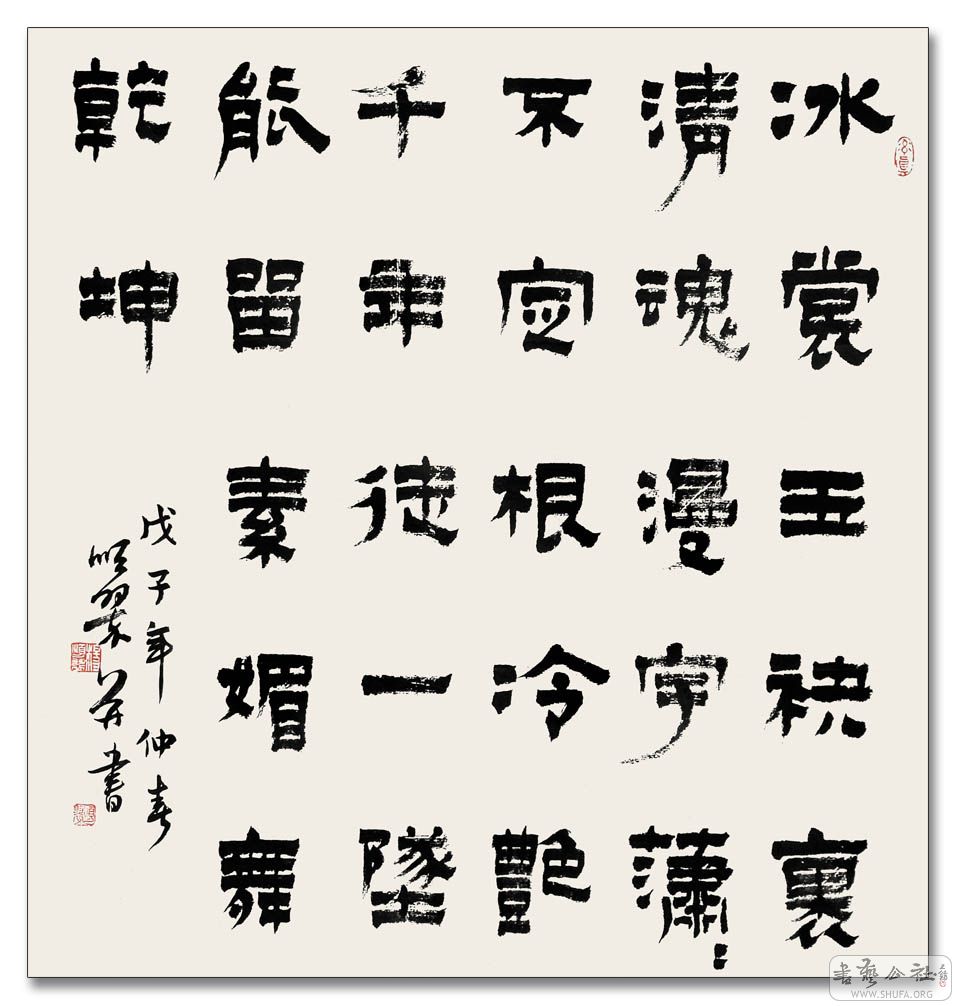 冰裳玉袂裹
清魂漫宇瀟〻
不定根冷艷
千年徒一墜
能留素媚舞
乾坤
戊子年仲春
并書
書藝公社
WWW.SHUFA.ORG